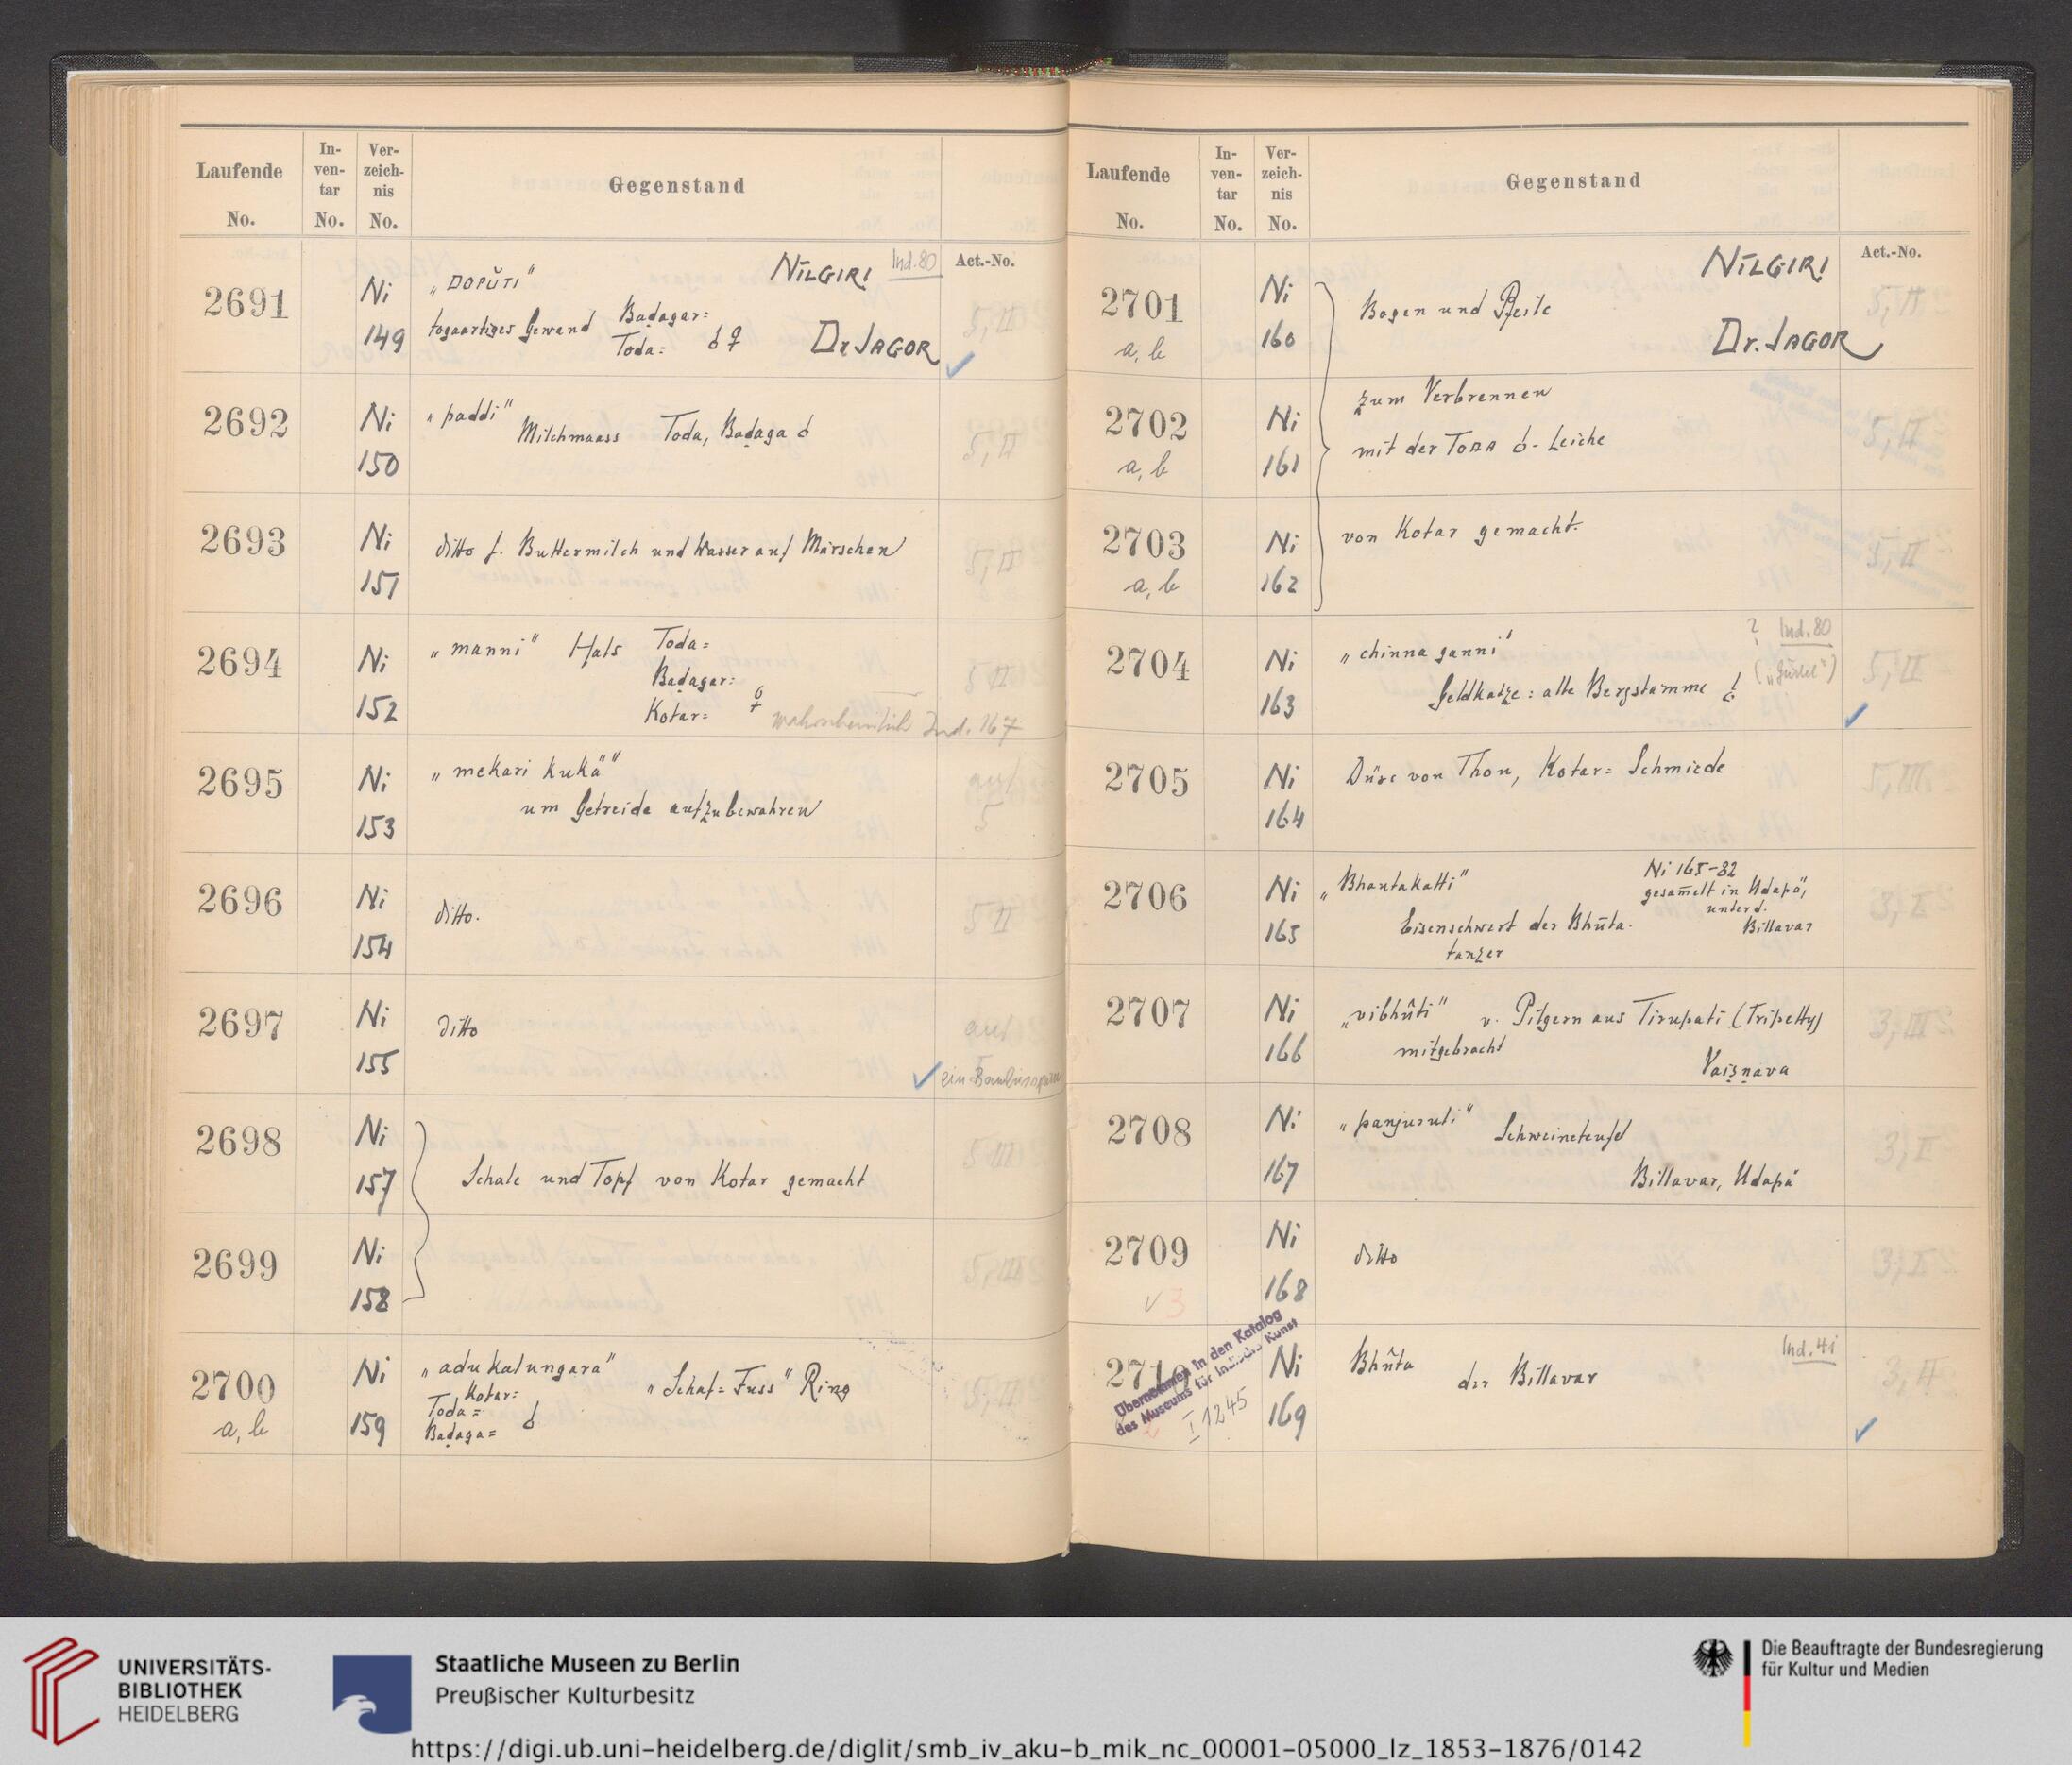 Laufende No.
In-ven-tar No.
Ver-zeich-nis No.
Gegenstand
Act.-No.
NILGIRI Ind. 80
2691 Ni 149 „DOPŬTI"
togaartiges Gewand Baḍagar=
Toda= ♂♀ Dr JAGOR
5, II
2692 Ni 150 „paddi"
Milchmaass Toda, Baḍaga ♂
5, II
2693 Ni 151 ditto f. Buttermilch und Wasser auf Märschen
5, II
2694 Ni 152 „manni" Hals Toda=
Baḍagar=
Kotar= ♀ wahrscheinlich Ind. 167
5 II
2695 Ni 153 „mekari kukä"
um Getreide aufzubewahren
auf
5
2696 Ni 154 ditto.
5 II
2697 Ni 155 ditto
auf
ein
2698 Ni 157
Schale und Topf von Kotar gemacht
5 III
2699 Ni 158
5, III
2700 a, b Ni 159 „adu kalungara"
Kotar= „Schaf=Fuss" Ring
Toda=
Baḍaga= ♂
5, II
Laufende No.
In-ven-tar No.
Ver-zeich-nis No.
Gegenstand
Act.-No.
NĪLGIRI
2701 a, b Ni 160 Bogen und Pfeile
Dr. JAGOR
5, II
2702 a, b Ni 161 zum Verbrennen
mit der TODA ♂-Leiche
5, II
2703 a, b Ni 162 von Kotar gemacht.
5, II
2704 Ni 163 „chinna ganni"
? Ind. 80
(„Gürtel")
Geldkatze: alle Bergstämme ♂
5, II
2705 Ni 164 Düse von Thon, Kotar=Schmiede
5, III
2706 Ni 165 „Bhautakatti"
Ni 165-82
gesam̄elt in Udapä,
unter d.
Billavar
Eisenschwert der Bhūta.
tänzer
3, I
2707 Ni 166 „vibhûti" v. Pilgern aus Tirupati (Tripetty)
mitgebracht
Vaiṣṇava
3, III
2708 Ni 167 „panjuruli" Schweineteufel
Billavar, Udapä
3, I
2709 Ni 168 ditto
v 3
3, I
2710 Ni 169 Bhûta der Billavar
Ind. 41
3, II
Übernommen in den Katalog
des Museums für Indische Kunst
I 1245
UNIVERSITÄTS-
BIBLIOTHEK
HEIDELBERG
Staatliche Museen zu Berlin
Preußischer Kulturbesitz
Die Beauftragte der Bundesregierung
für Kultur und Medien
https://digi.ub.uni-heidelberg.de/diglit/smb_iv_aku-b_mik_nc_00001-05000_lz_1853-1876/0142